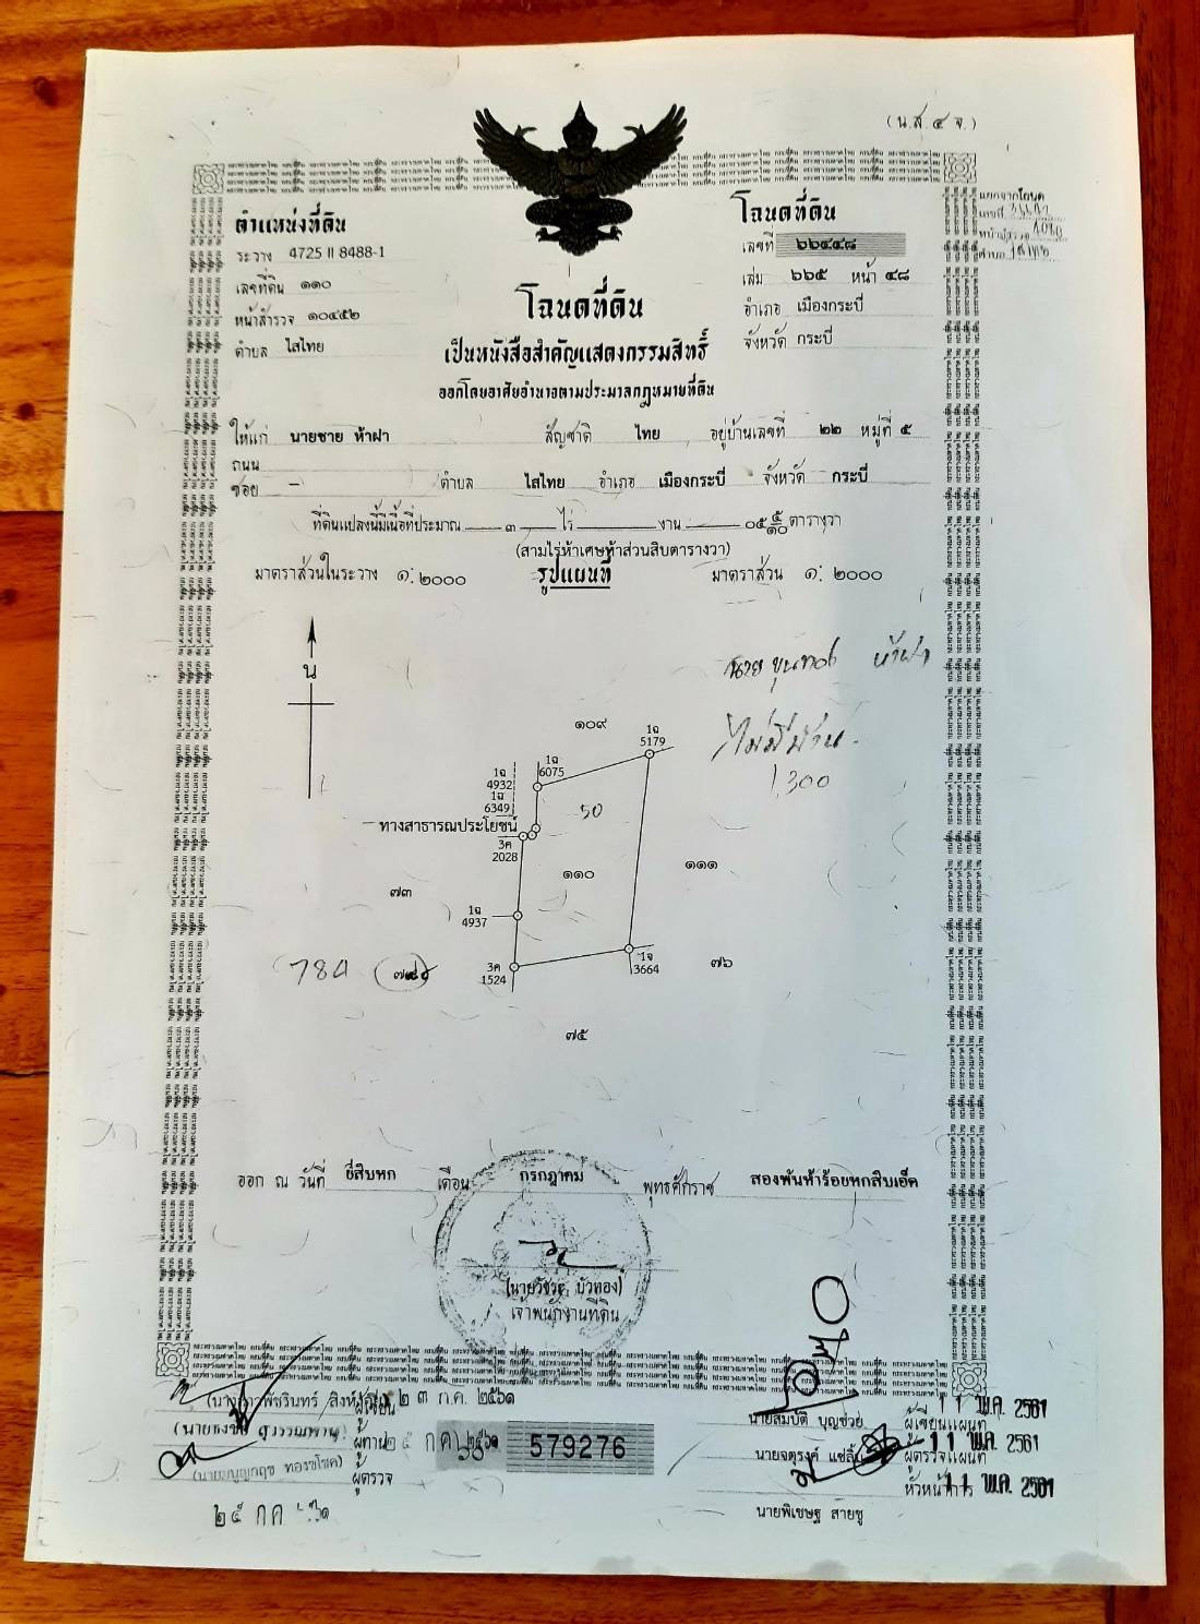 (น.ส.๔ จ.)
ตำแหน่งที่ดิน
ระวาง 4725 II 8488-1
เลขที่ดิน ๑๑๐
หน้าสำรวจ ๑๐๔๕๒
ตำบล ไสไทย
โฉนดที่ดิน
เลขที่ ๒๒๔๔๘
เล่ม ๖๖๕ หน้า ๔๘
อำเภอ เมืองกระบี่
จังหวัด กระบี่
แยกจากโฉนด
เลขที่
หน้าสำรวจ
ตำบล
โฉนดที่ดิน
เป็นหนังสือสำคัญแสดงกรรมสิทธิ์
ออกโดยอาศัยอำนาจตามประมวลกฎหมายที่ดิน
ให้แก่ นายชาย ห้าฝา สัญชาติ ไทย อยู่บ้านเลขที่ ๒๒ หมู่ที่ ๕
ถนน
ซอย – ตำบล ไสไทย อำเภอ เมืองกระบี่ จังหวัด กระบี่
ที่ดินแปลงนี้มีเนื้อที่ประมาณ ๓ ไร่ งาน ๐๕ ๕/๑๐ ตารางวา
(สามไร่ห้าเศษห้าส่วนสิบตารางวา)
มาตราส่วนในระวาง ๑:๒๐๐๐ รูปแผนที่ มาตราส่วน ๑:๒๐๐๐
น
นาย ขุนทอง ห้าฝา
ไม่มีบ้าน
1,300
๑๐๙
1ฉ
5179
1ฉ
6075
1ฉ
4932
1ฉ
6349
50
ทางสาธารณประโยชน์
3ค
2028
๑๑๐
๑๑๑
๗๓
1ฉ
4937
784
3ค
1524
1จ
3664
๗๖
๗๕
ออก ณ วันที่ ยี่สิบหก เดือน กรกฎาคม พุทธศักราช สองพันห้าร้อยหกสิบเอ็ด
(นายวัชระ บัวทอง)
เจ้าพนักงานที่ดิน
๒ ๓ ก.ค. ๒๕๖๑
ผู้เขียน
ผู้ทาน
ผู้ตรวจ
579276
๒๕ กค
นายสมบัติ บุญช่วย ผู้เขียนแผนที่ 11 พ.ค. 2561
นายจตุรงค์ ผู้ตรวจแผนที่ 11 พ.ค. 2561
หัวหน้าการ 11 พ.ค. 2561
นายพิเชษฐ สายชู